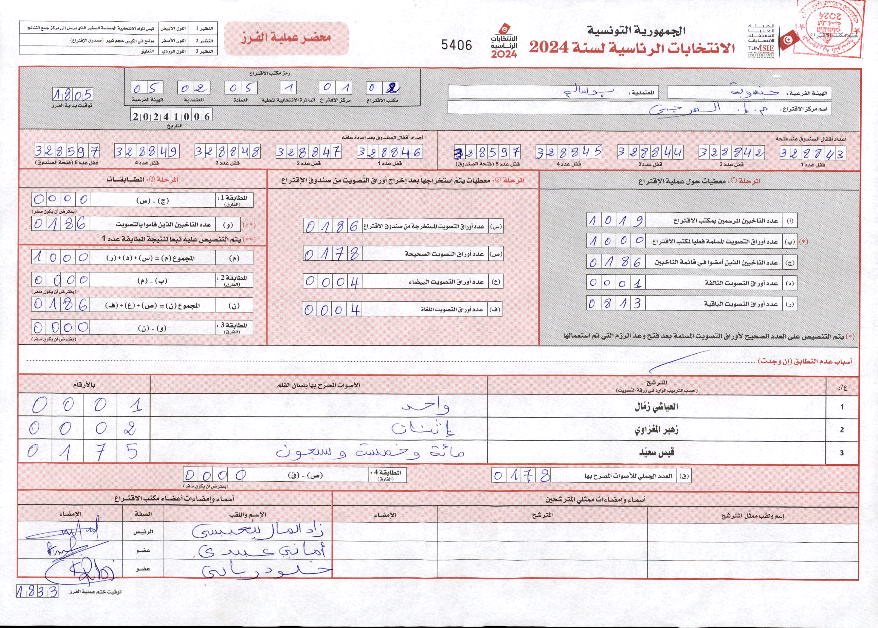 الجمهورية التونسية
الانتخابات الرئاسية لسنة 2024
الانتخابات
الرئاسية
2024
5406
محضر عملية الفرز
النظير 1 اللون الأبيض
النظير 2 اللون الأصفر
النظير 3 اللون الوردي التعليق
الهيئة الفرعية: جندوبة
المعتمدية:
اسم مركز الاقتراع:
رمز مكتب الاقتراع
02 01 1 05 02 05
مكتب الاقتراع مركز الاقتراع الدائرة الانتخابية المحلية العمادة المعتمدية الهيئة الفرعية
20241006
التاريخ
1805
توقيت بداية الفرز
أعداد أقفال الصندوق عند فتحه
328843 328842 328844 328845 328597
قفل عدد 1 قفل عدد 2 قفل عدد 3 قفل عدد 4 قفل عدد 5 (فتحة الصندوق)
أعداد أقفال الصندوق بعد إعادة غلقه
328846 328847 328848 328849 328597
قفل عدد 1 قفل عدد 2 قفل عدد 3 قفل عدد 4 قفل عدد 5 (فتحة الصندوق)
المرحلة 1: معطيات حول عملية الاقتراع
(أ) عدد الناخبين المرسمين بمكتب الاقتراع 1019
(ب) عدد أوراق التصويت المسلمة فعليا لمكتب الاقتراع 1000
(ج) عدد الناخبين الذين أمضوا في قائمة الناخبين 0186
(د) عدد أوراق التصويت التالفة 0001
(ر) عدد أوراق التصويت الباقية 0813
(*) يتم التنصيص على العدد الصحيح لأوراق التصويت المسلمة بعد فتح وعد الرزم التي تم استعمالها
المرحلة 2: معطيات يتم استخراجها بعد إخراج أوراق التصويت من صندوق الاقتراع
(س) عدد أوراق التصويت المستخرجة من صندوق الاقتراع 0186
(ص) عدد أوراق التصويت الصحيحة 0178
(ع) عدد أوراق التصويت البيضاء 0004
(ف) عدد أوراق التصويت الملغاة 0004
المرحلة 3: المطابقات
المطابقة 1: (ج) - (س) 0000
(و) عدد الناخبين الذين قاموا بالتصويت 0186
يتم التنصيص عليه تبعا لنتيجة المطابقة عدد 1
(م) المجموع (م) = (س) + (د) + (ر) 1000
المطابقة 2: (ب) - (م) 0000
(ن) المجموع (ن) = (ص) + (ع) + (ف) 0186
المطابقة 3: (و) - (ن) 0000
أسباب عدم التطابق (إن وجدت)
ع/ر المترشح الأصوات المصرح بها بلسان القلم بالأرقام
(حسب الترتيب الوارد في ورقة التصويت)
1 العياشي زمال واحد 0001
2 زهير المغزاوي إثنان 0002
3 قيس سعيّد مائة وخمسة وسبعون 0175
(ق) العدد الجملي للأصوات المصرح بها 0178
المطابقة 4: (ص) - (ق) 0000
أسماء وإمضاءات ممثلي المترشحين
أسماء وإمضاءات أعضاء مكتب الاقتراع
اسم ولقب ممثل المترشح المترشح الإمضاء
الإسم واللقب الصفة الإمضاء
الرئيس
أماني عبيدي عضو
عضو
توقيت ختم عملية الفرز 1833